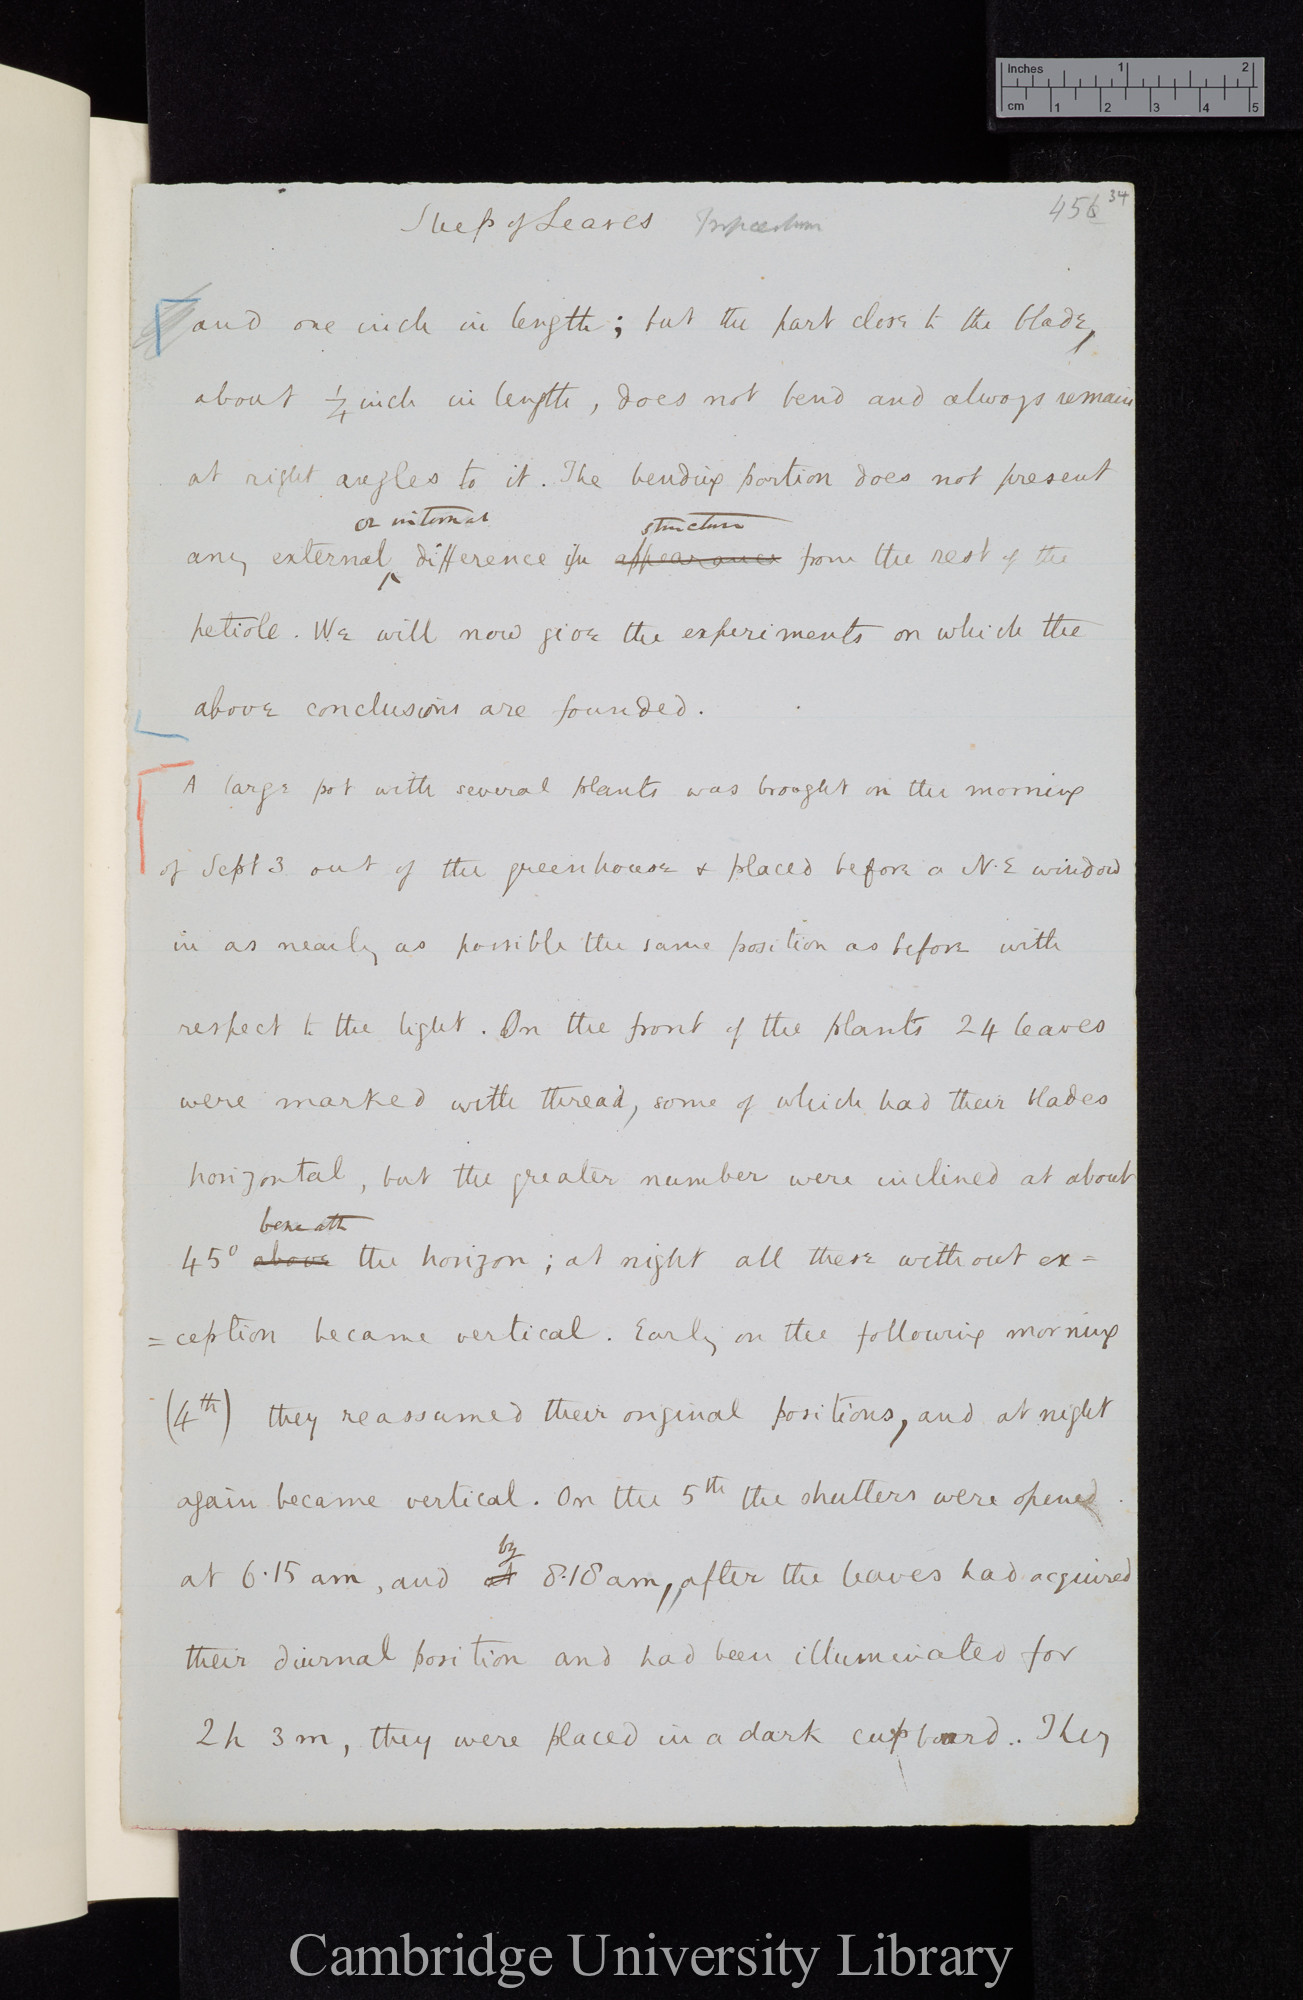 inches 1 2
cm 1 2 3 4 5
34
Sleep of Leaves Tropaeolum 456
and one inch in length; but the part close to the blade,
about 1/4 inch in length, does not bend and always remain
at right angles to it. The bending portion does not present
or internal structure
any external difference in appearance from the rest of the
petiole. We will now give the experiments on which the
above conclusions are founded.
A large pot with several plants was brought on the morning
of Sept 3 out of the greenhouse & placed before a N.E window
in as nearly as possible the same position as before with
respect to the light. On the front of the plants 24 leaves
were marked with thread, some of which had their blades
horizontal, but the greater number were inclined at about
beneath
45° above the horizon; at night all these without ex=
=ception became vertical. Early on the following morning
(4th) they reassumed their original positions, and at night
again became vertical. On the 5th the shutters were opened
by
at 6.15 am, and at 8.18 am, after the leaves had acquired
their diurnal position and had been illuminated for
2h 3m, they were placed in a dark cupboard. They
Cambridge University Library